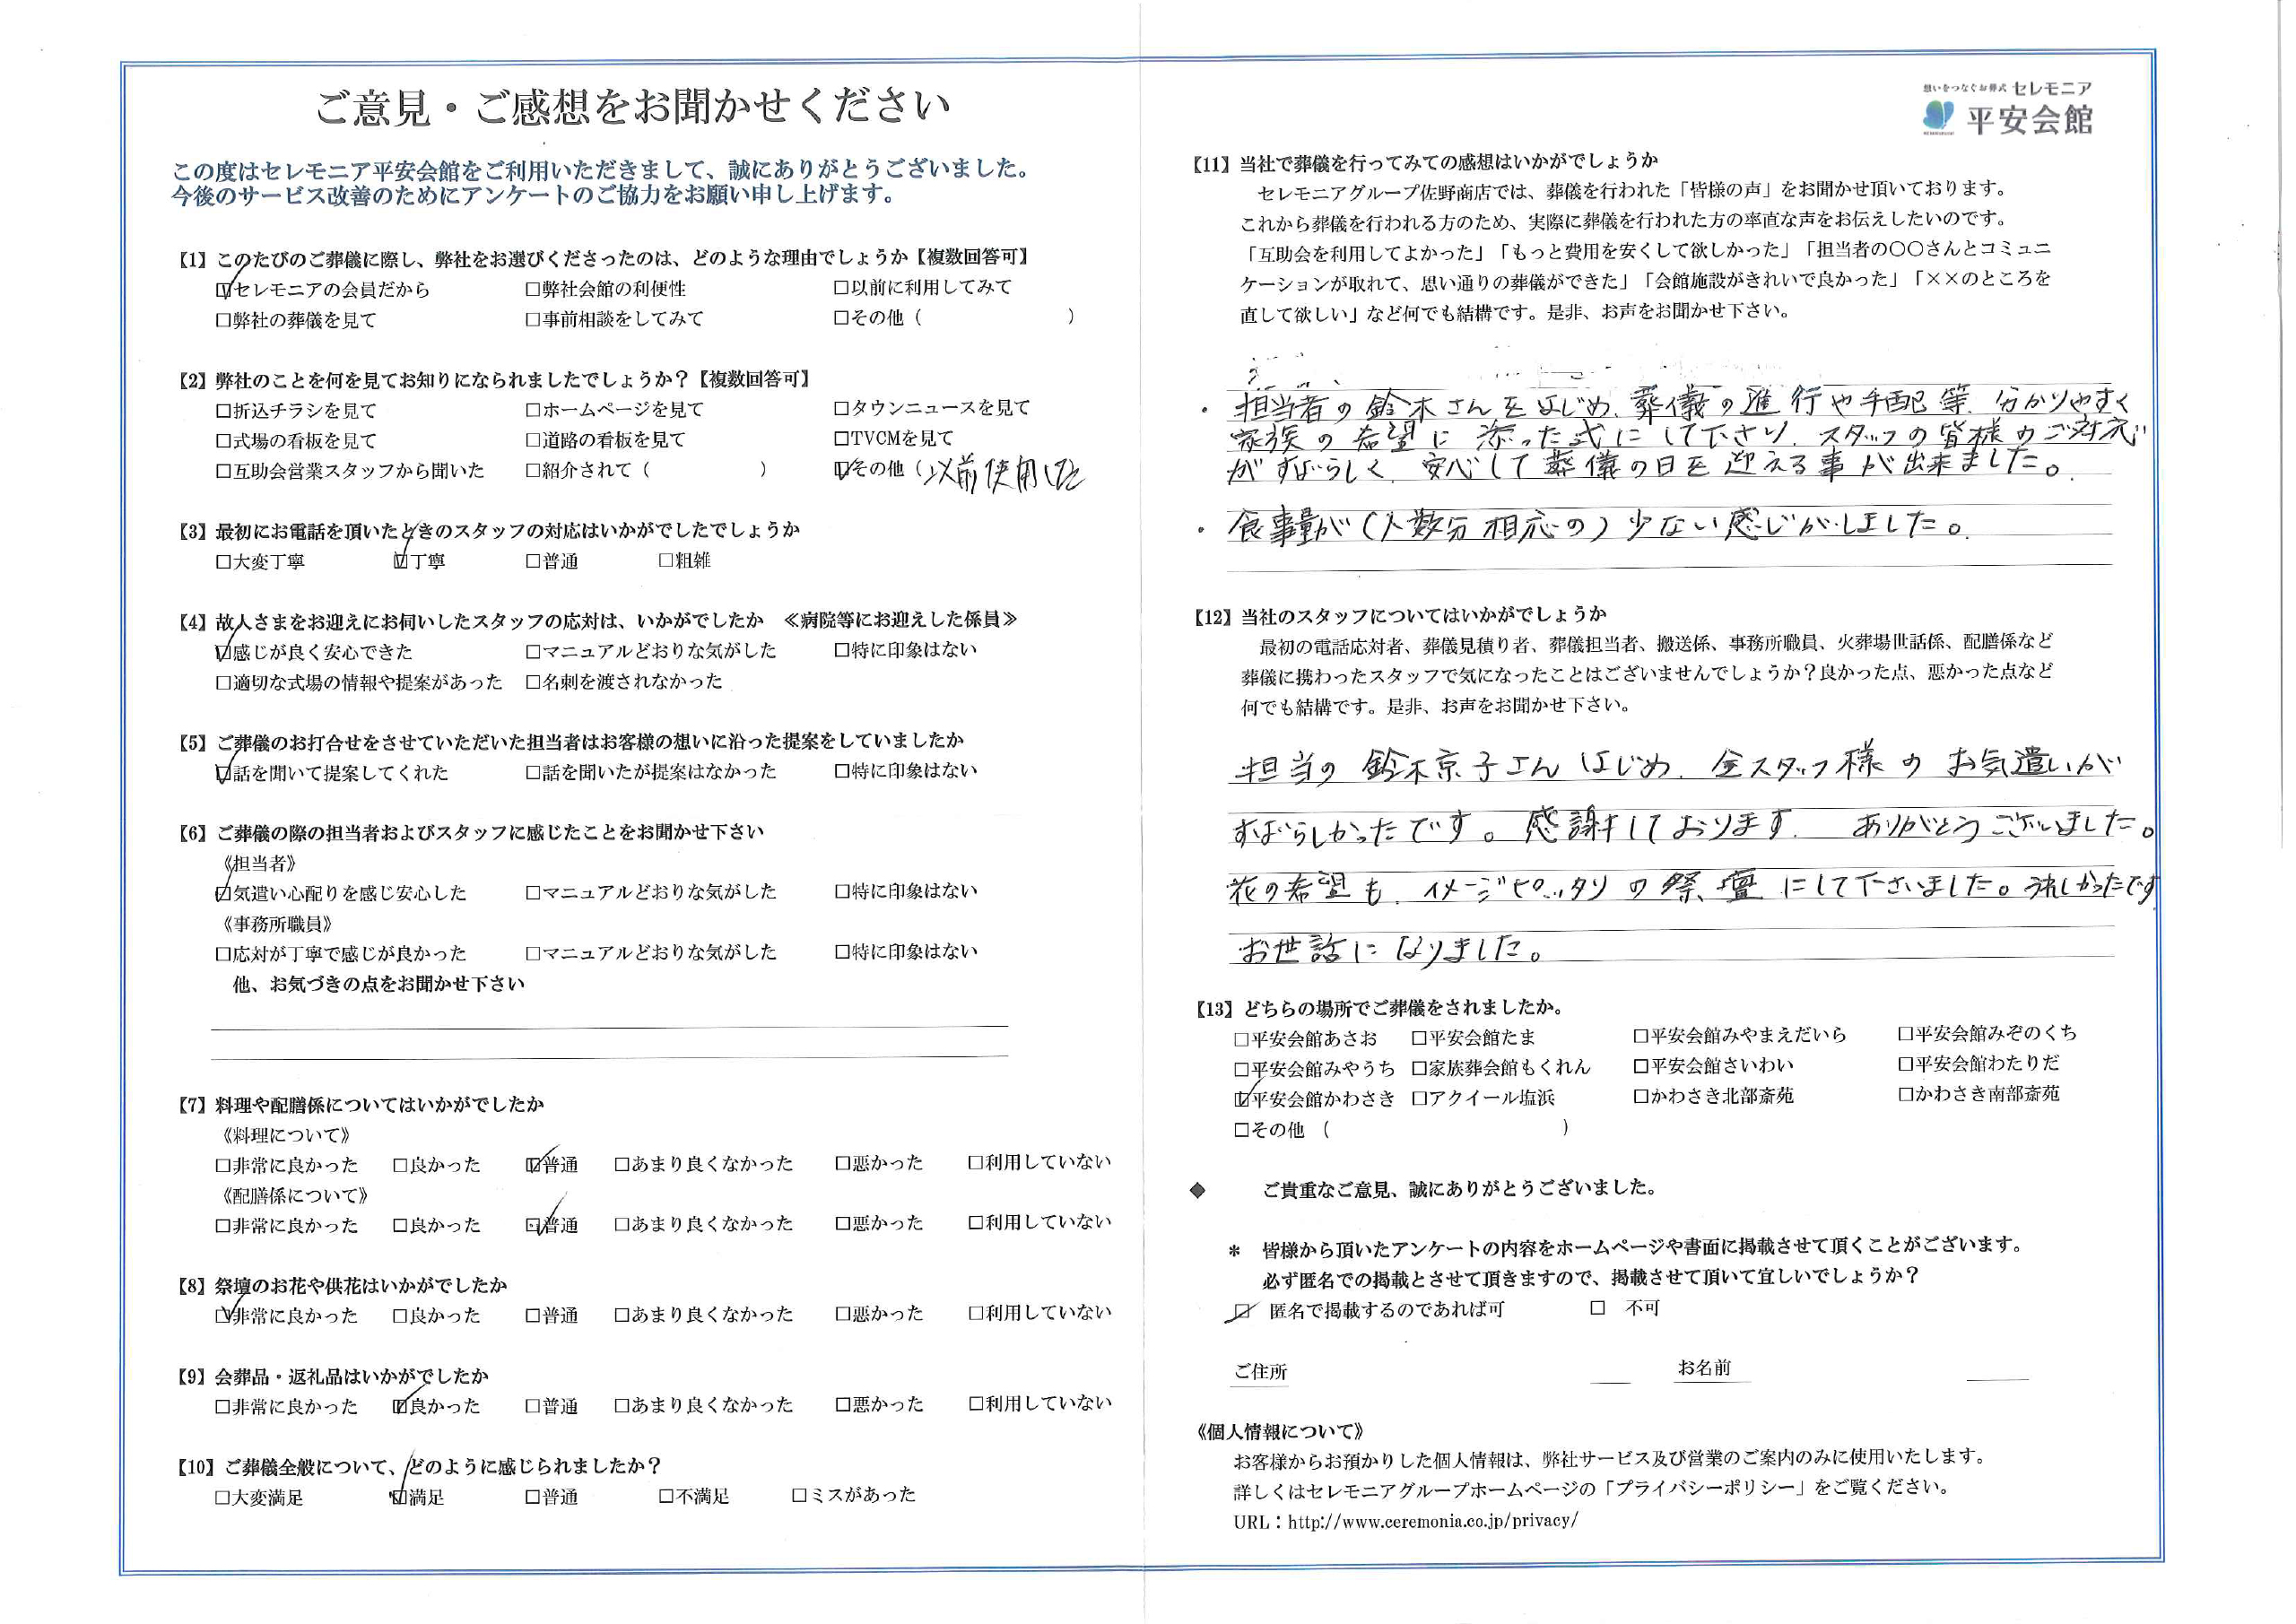 ご意見・ご感想をお聞かせください
この度はセレモニア平安会館をご利用いただきまして、誠にありがとうございました。
今後のサービス改善のためにアンケートのご協力をお願い申し上げます。
【1】このたびのご葬儀に際し、弊社をお選びくださったのは、どのような理由でしょうか【複数回答可】
☑セレモニアの会員だから □弊社会館の利便性 □以前に利用してみて
□弊社の葬儀を見て □事前相談をしてみて □その他（ ）
【2】弊社のことを何を見てお知りになられましたでしょうか？【複数回答可】
□折込チラシを見て □ホームページを見て □タウンニュースを見て
□式場の看板を見て □道路の看板を見て □TVCMを見て
□互助会営業スタッフから聞いた □紹介されて（ ） ☑その他（以前使用した
【3】最初にお電話を頂いたときのスタッフの対応はいかがでしたでしょうか
□大変丁寧 ☑丁寧 □普通 □粗雑
【4】故人さまをお迎えにお伺いしたスタッフの応対は、いかがでしたか ≪病院等にお迎えした係員≫
☑感じが良く安心できた □マニュアルどおりな気がした □特に印象はない
□適切な式場の情報や提案があった □名刺を渡されなかった
【5】ご葬儀のお打合せをさせていただいた担当者はお客様の想いに沿った提案をしていましたか
☑話を聞いて提案してくれた □話を聞いたが提案はなかった □特に印象はない
【6】ご葬儀の際の担当者およびスタッフに感じたことをお聞かせ下さい
《担当者》
☑気遣い心配りを感じ安心した □マニュアルどおりな気がした □特に印象はない
《事務所職員》
□応対が丁寧で感じが良かった □マニュアルどおりな気がした □特に印象はない
他、お気づきの点をお聞かせ下さい
【7】料理や配膳係についてはいかがでしたか
《料理について》
□非常に良かった □良かった ☑普通 □あまり良くなかった □悪かった □利用していない
《配膳係について》
□非常に良かった □良かった ☑普通 □あまり良くなかった □悪かった □利用していない
【8】祭壇のお花や供花はいかがでしたか
☑非常に良かった □良かった □普通 □あまり良くなかった □悪かった □利用していない
【9】会葬品・返礼品はいかがでしたか
□非常に良かった ☑良かった □普通 □あまり良くなかった □悪かった □利用していない
【10】ご葬儀全般について、どのように感じられましたか？
□大変満足 ☑満足 □普通 □不満足 □ミスがあった
想いをつなぐお葬式 セレモニア
平安会館
【11】当社で葬儀を行ってみての感想はいかがでしょうか
セレモニアグループ佐野商店では、葬儀を行われた「皆様の声」をお聞かせ頂いております。
これから葬儀を行われる方のため、実際に葬儀を行われた方の率直な声をお伝えしたいのです。
「互助会を利用してよかった」「もっと費用を安くして欲しかった」「担当者の〇〇さんとコミュニ
ケーションが取れて、思い通りの葬儀ができた」「会館施設がきれいで良かった」「××のところを
直して欲しい」など何でも結構です。是非、お声をお聞かせ下さい。
・担当者の鈴木さんをはじめ、葬儀の進行や手配等、分かりやすく
家族の希望に添った式にして下さり、スタッフの皆様のご対応
がすばらしく、安心して葬儀の日を迎える事が出来ました。
・食事量が（人数分相応の）少ない感じがしました。
【12】当社のスタッフについてはいかがでしょうか
最初の電話応対者、葬儀見積り者、葬儀担当者、搬送係、事務所職員、火葬場世話係、配膳係など
葬儀に携わったスタッフで気になったことはございませんでしょうか？良かった点、悪かった点など
何でも結構です。是非、お声をお聞かせ下さい。
担当の鈴木京子さんはじめ、全スタッフ様のお気遣いが
すばらしかったです。感謝しております。ありがとうございました。
花の希望も、イメージピッタリの祭壇にして下さいました。うれしかったです
お世話になりました。
【13】どちらの場所でご葬儀をされましたか。
□平安会館あさお □平安会館たま □平安会館みやまえだいら □平安会館みぞのくち
□平安会館みやうち □家族葬会館もくれん □平安会館さいわい □平安会館わたりだ
☑平安会館かわさき □アクイール塩浜 □かわさき北部斎苑 □かわさき南部斎苑
□その他（ ）
◆ ご貴重なご意見、誠にありがとうございました。
＊ 皆様から頂いたアンケートの内容をホームページや書面に掲載させて頂くことがございます。
必ず匿名での掲載とさせて頂きますので、掲載させて頂いて宜しいでしょうか？
☑ 匿名で掲載するのであれば可 □ 不可
ご住所 お名前
《個人情報について》
お客様からお預かりした個人情報は、弊社サービス及び営業のご案内のみに使用いたします。
詳しくはセレモニアグループホームページの「プライバシーポリシー」をご覧ください。
URL：http://www.ceremonia.co.jp/privacy/